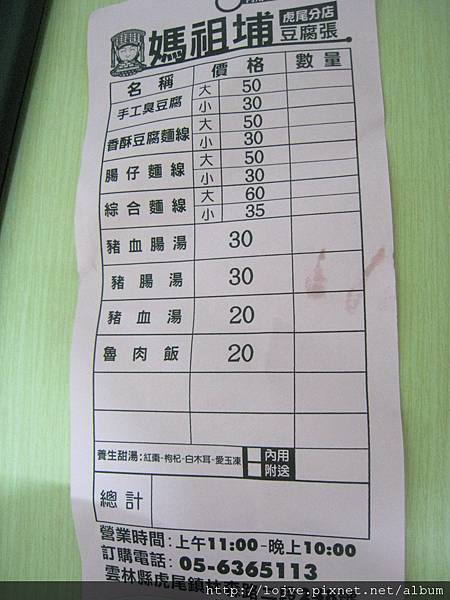 媽祖埔 虎尾分店 豆腐張
名稱 價格 數量
手工臭豆腐 大 50
小 30
香酥豆腐麵線 大 50
小 30
腸仔麵線 大 50
小 30
綜合麵線 大 60
小 35
豬血腸湯 30
豬腸湯 30
豬血湯 20
魯肉飯 20
養生甜湯:紅棗-枸杞-白木耳-愛玉凍 內用
附送
總計
營業時間:上午11:00-晚上10:00
訂購電話: 05-6365113
雲林縣虎尾鎮林森路
http://lojye.pixnet.net/album